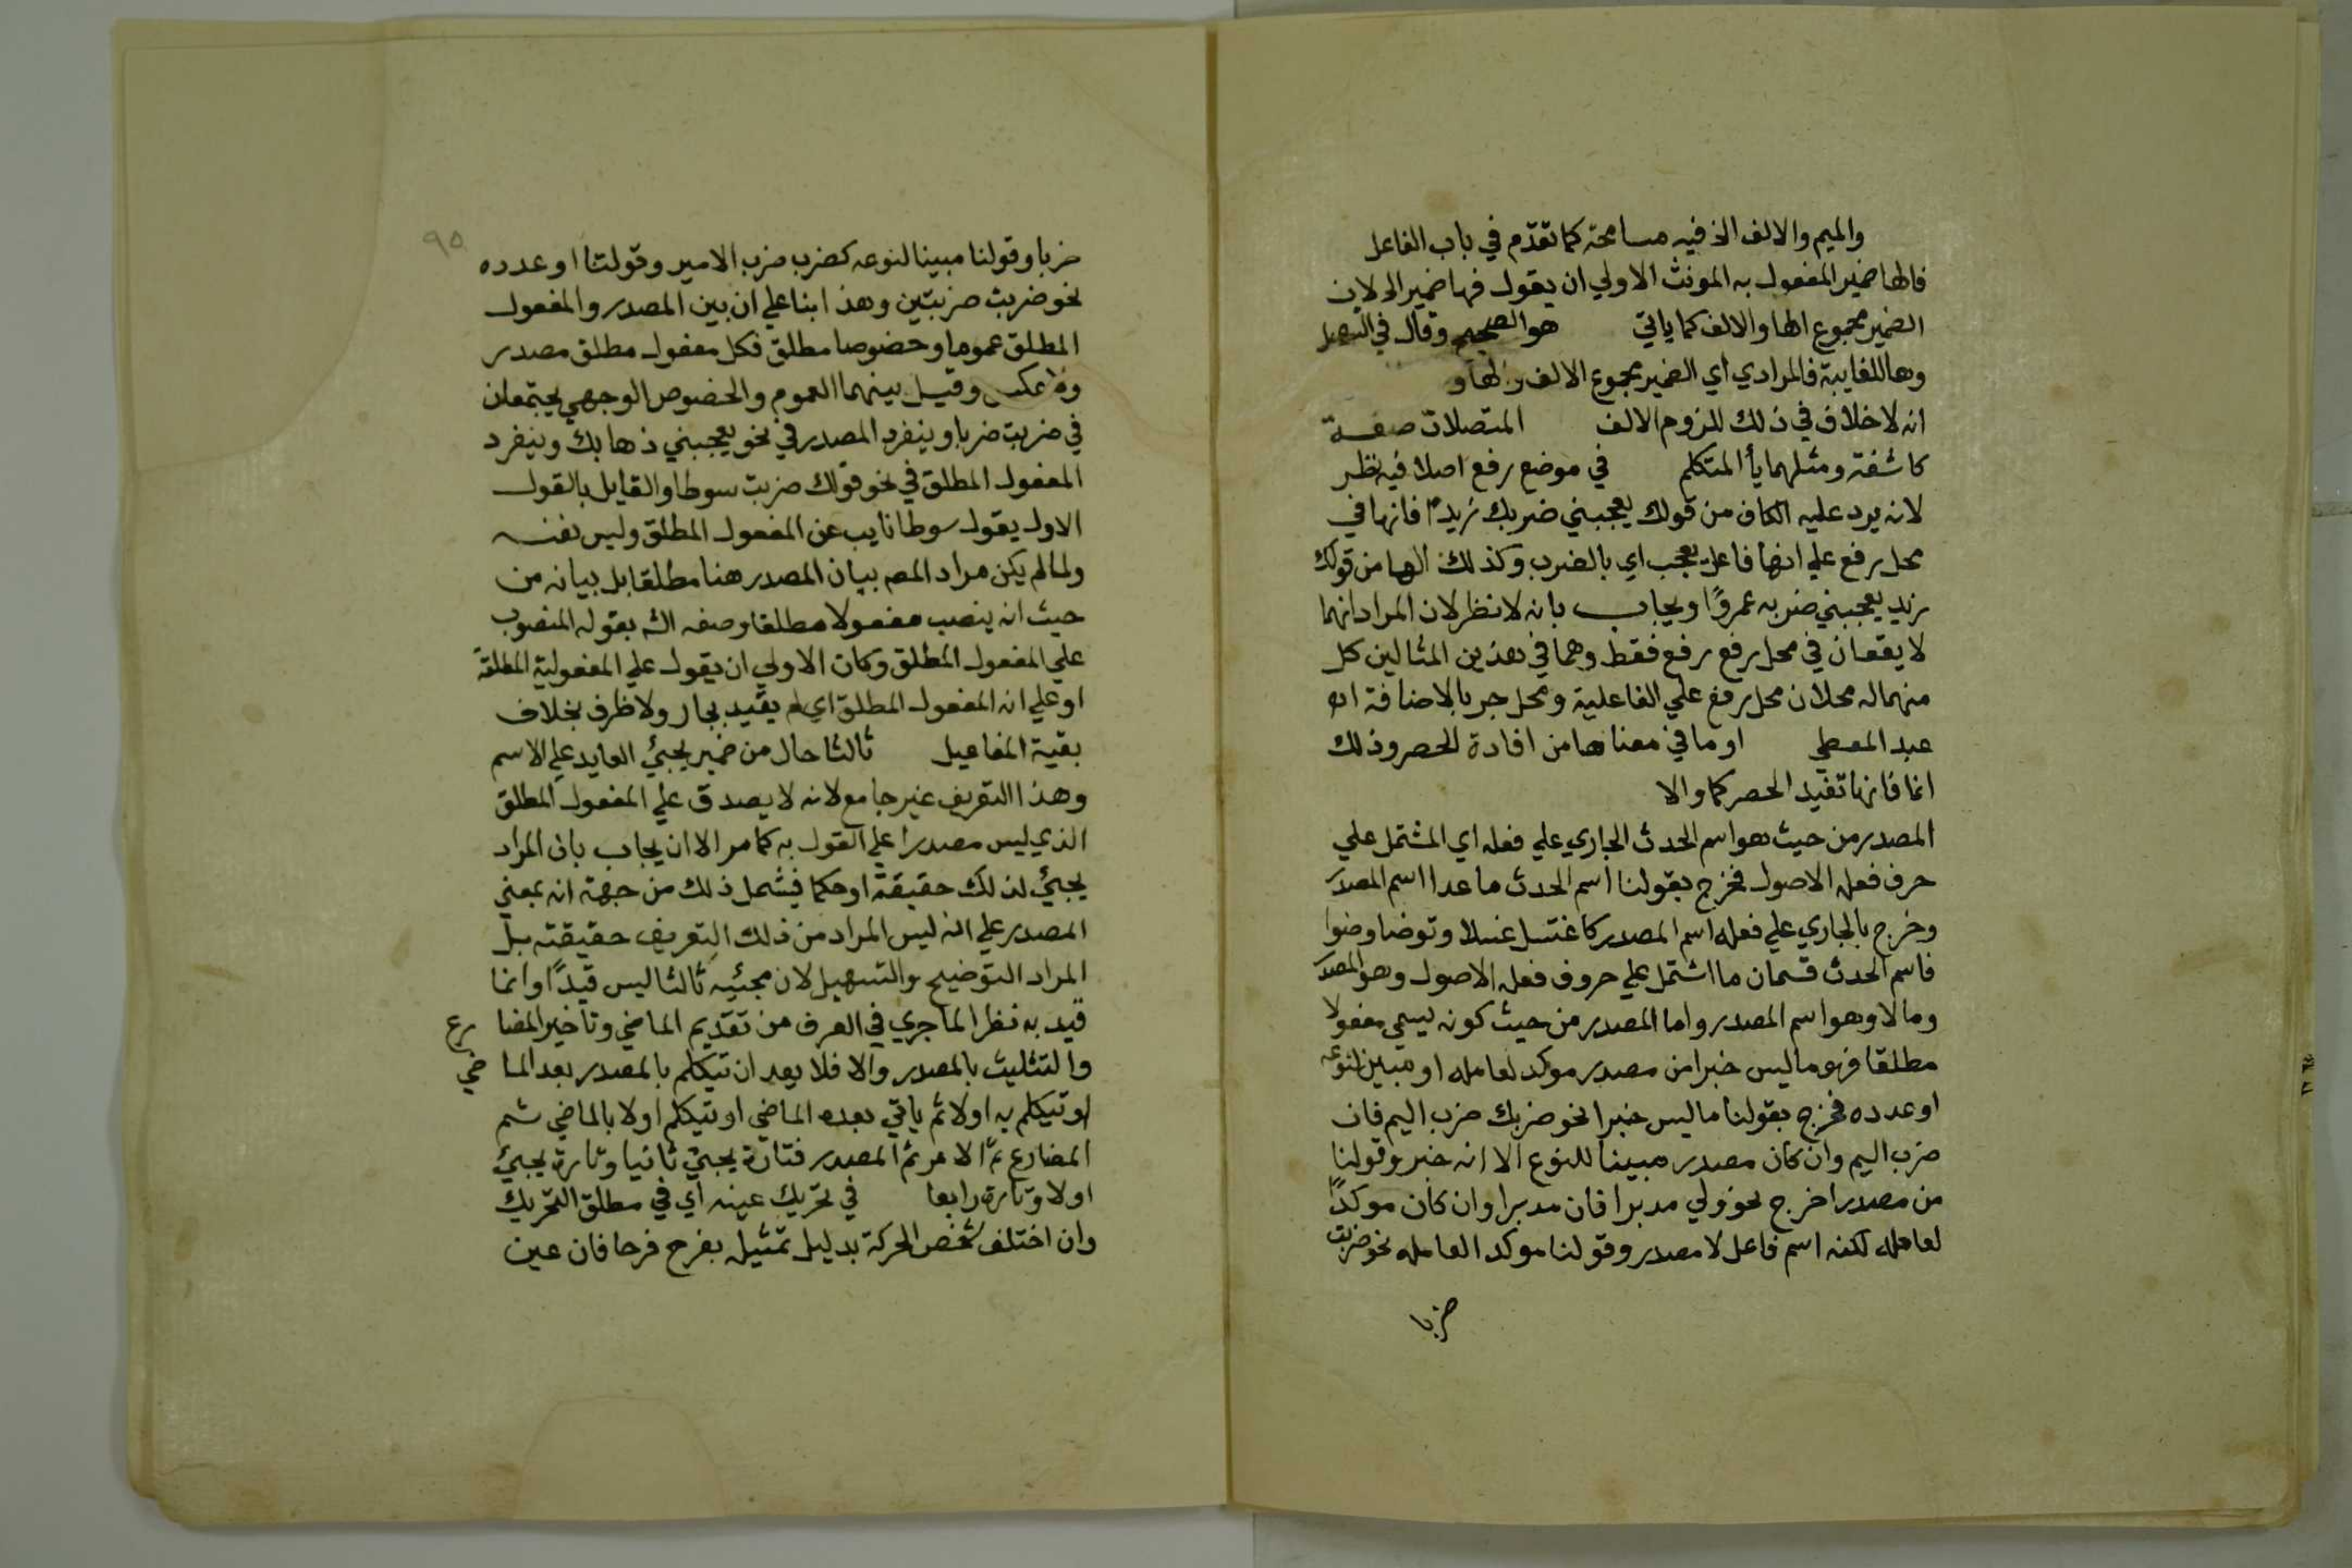 والميم والالف الخ فيه مسامحة كما تقدم في باب الفاعل
فالها ضمير المفعول به المونث الاولي ان يقول فها ضمير الخ لان
الضمير مجموع الها والالف كما ياتي هو الصحيح وقال في التسهيل
وها للغايبة فالمرادي اي الضمير مجموع الالف والها و
انه لا خلاف في ذلك للزوم الالف المتصلات صفة
كاشفة ومثلهما يأ المتكلم في موضع رفع اصلا فيه نظر
لانه يرد عليه الكاف من قولك يعجبني ضربك زيدا فانها في
محل رفع علي انها فاعل يعجب اي بالضرب وكذلك الها من قولك
زيد يعجبني ضربه عمروًا ويجاب بانه لا نظر لان المراد انهما
لا يقعان في محل رفع رفع فقط وهما في هذين المثالين كل
منهما له محلان محل رفع علي الفاعلية ومحل جر بالاضافة اه
عبد المعطي او ما في معناها من افادة الحصر وذلك
انما فانها تفيد الحصر كما والا
المصدر من حيث هو اسم الحدث الجاري علي فعله اي المشتمل علي
حرف فعله الاصول فخرج بقولنا اسم الحدث ما عدا اسم المصدر
وخرج بالجاري علي فعله اسم المصدر كاغتسل غسلا وتوضا وضوا
فاسم الحدث قسمان ما اشتمل علي حروف فعله الاصول وهو المصدر
وما لا وهو اسم المصدر واما المصدر من حيث كونه يسمي مفعولا
مطلقا فهو ما ليس خبرا من مصدر موكد لعامله او مبين لنوعه
او عدده فخرج بقولنا ما ليس خبرا نحو ضربك ضرب اليم فان
ضرب اليم وان كان مصدر مبينا للنوع الا انه خبر وقولنا
من مصدر اخرج نحو ولي مدبرا فان مدبرا وان كان موكدًا
لعامله لكنه اسم فاعل لا مصدر وقولنا موكد العامله نحو ضربت
ضربا
٩٥
ضربا وقولنا مبينا لنوعه كضرب ضرب الامير وقولنا او عدده
نحو ضربت ضربتين وهذا بنا علي ان بين المصدر والمفعول
المطلق عموما وخصوصا مطلق فكل مفعول مطلق مصدر
ولا عكس وقيل بينهما العموم والخصوص الوجهي يجتمعان
في ضربت ضربا وينفرد المصدر في نحو يعجبني ذهابك وينفرد
المفعول المطلق في نحو قولك ضربت سوطا والقايل بالقول
الاول يقول سوطا نايب عن المفعول المطلق وليس نفسه
ولما لم يكن مراد المص بيان المصدر هنا مطلقا بل بيانه من
حيث انه ينصب مفعولا مطلقا وصفه الش بقوله المنصوب
علي المفعول المطلق وكان الاولي ان يقول علي المفعولية المطلقة
او علي انه المفعول المطلق اي لم يقيد بجار ولا ظرف بخلاف
بقية المفاعيل ثالثا حال من ضمير يجئ العايد علي الاسم
وهذا التعريف غير جامع لانه لا يصدق علي المفعول المطلق
الذي ليس مصدرا علي القول به كما مر الا ان يجاب بان المراد
يجئ لذلك حقيقة او حكما فيشمل ذلك من جهة انه بمعني
المصدر علي انه ليس المراد من ذلك التعريف حقيقته بل
المراد التوضيح والتسهيل لان مجئيه ثالثا ليس قيدًا وانما
قيد به نظرا لما جري في العرف من تقديم الماضي وتاخير المضارع
والتثليث بالمصدر والا فلا يعد ان تتكلم بالمصدر بعد الماضي
او تتكلم به اولا ثم ياتي بعده الماضي او تتكلم اولا بالماضي ثم
المضارع ثم الامر ثم المصدر فتارة يجئ ثانيا وتارة يجئ
اولا وتارة رابعا في تحريك عينه اي في مطلق التحريك
وان اختلف شخص الحركة بدليل تمثيله بفرح فرحا فان عين